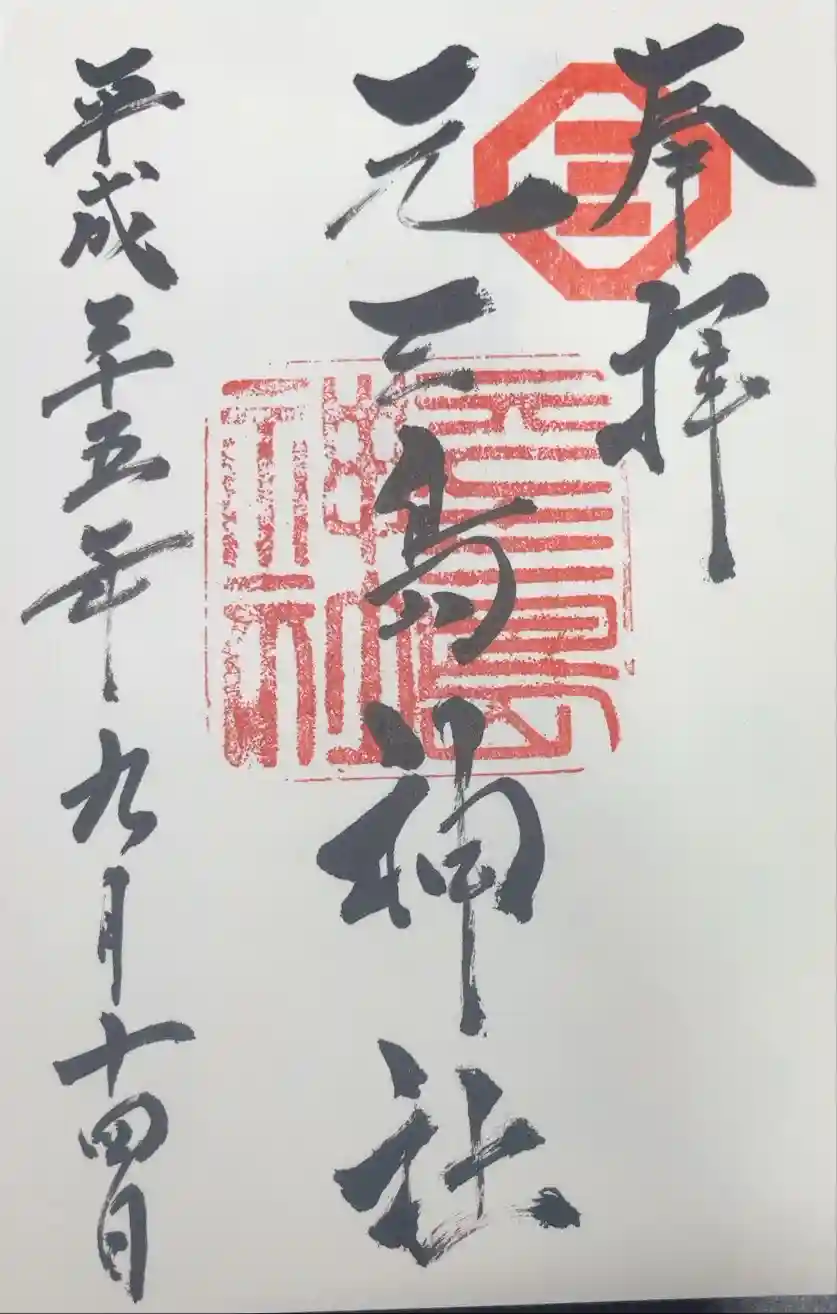 奉拝
三
元三島神社
元三島神社
平成二十五年九月十四日